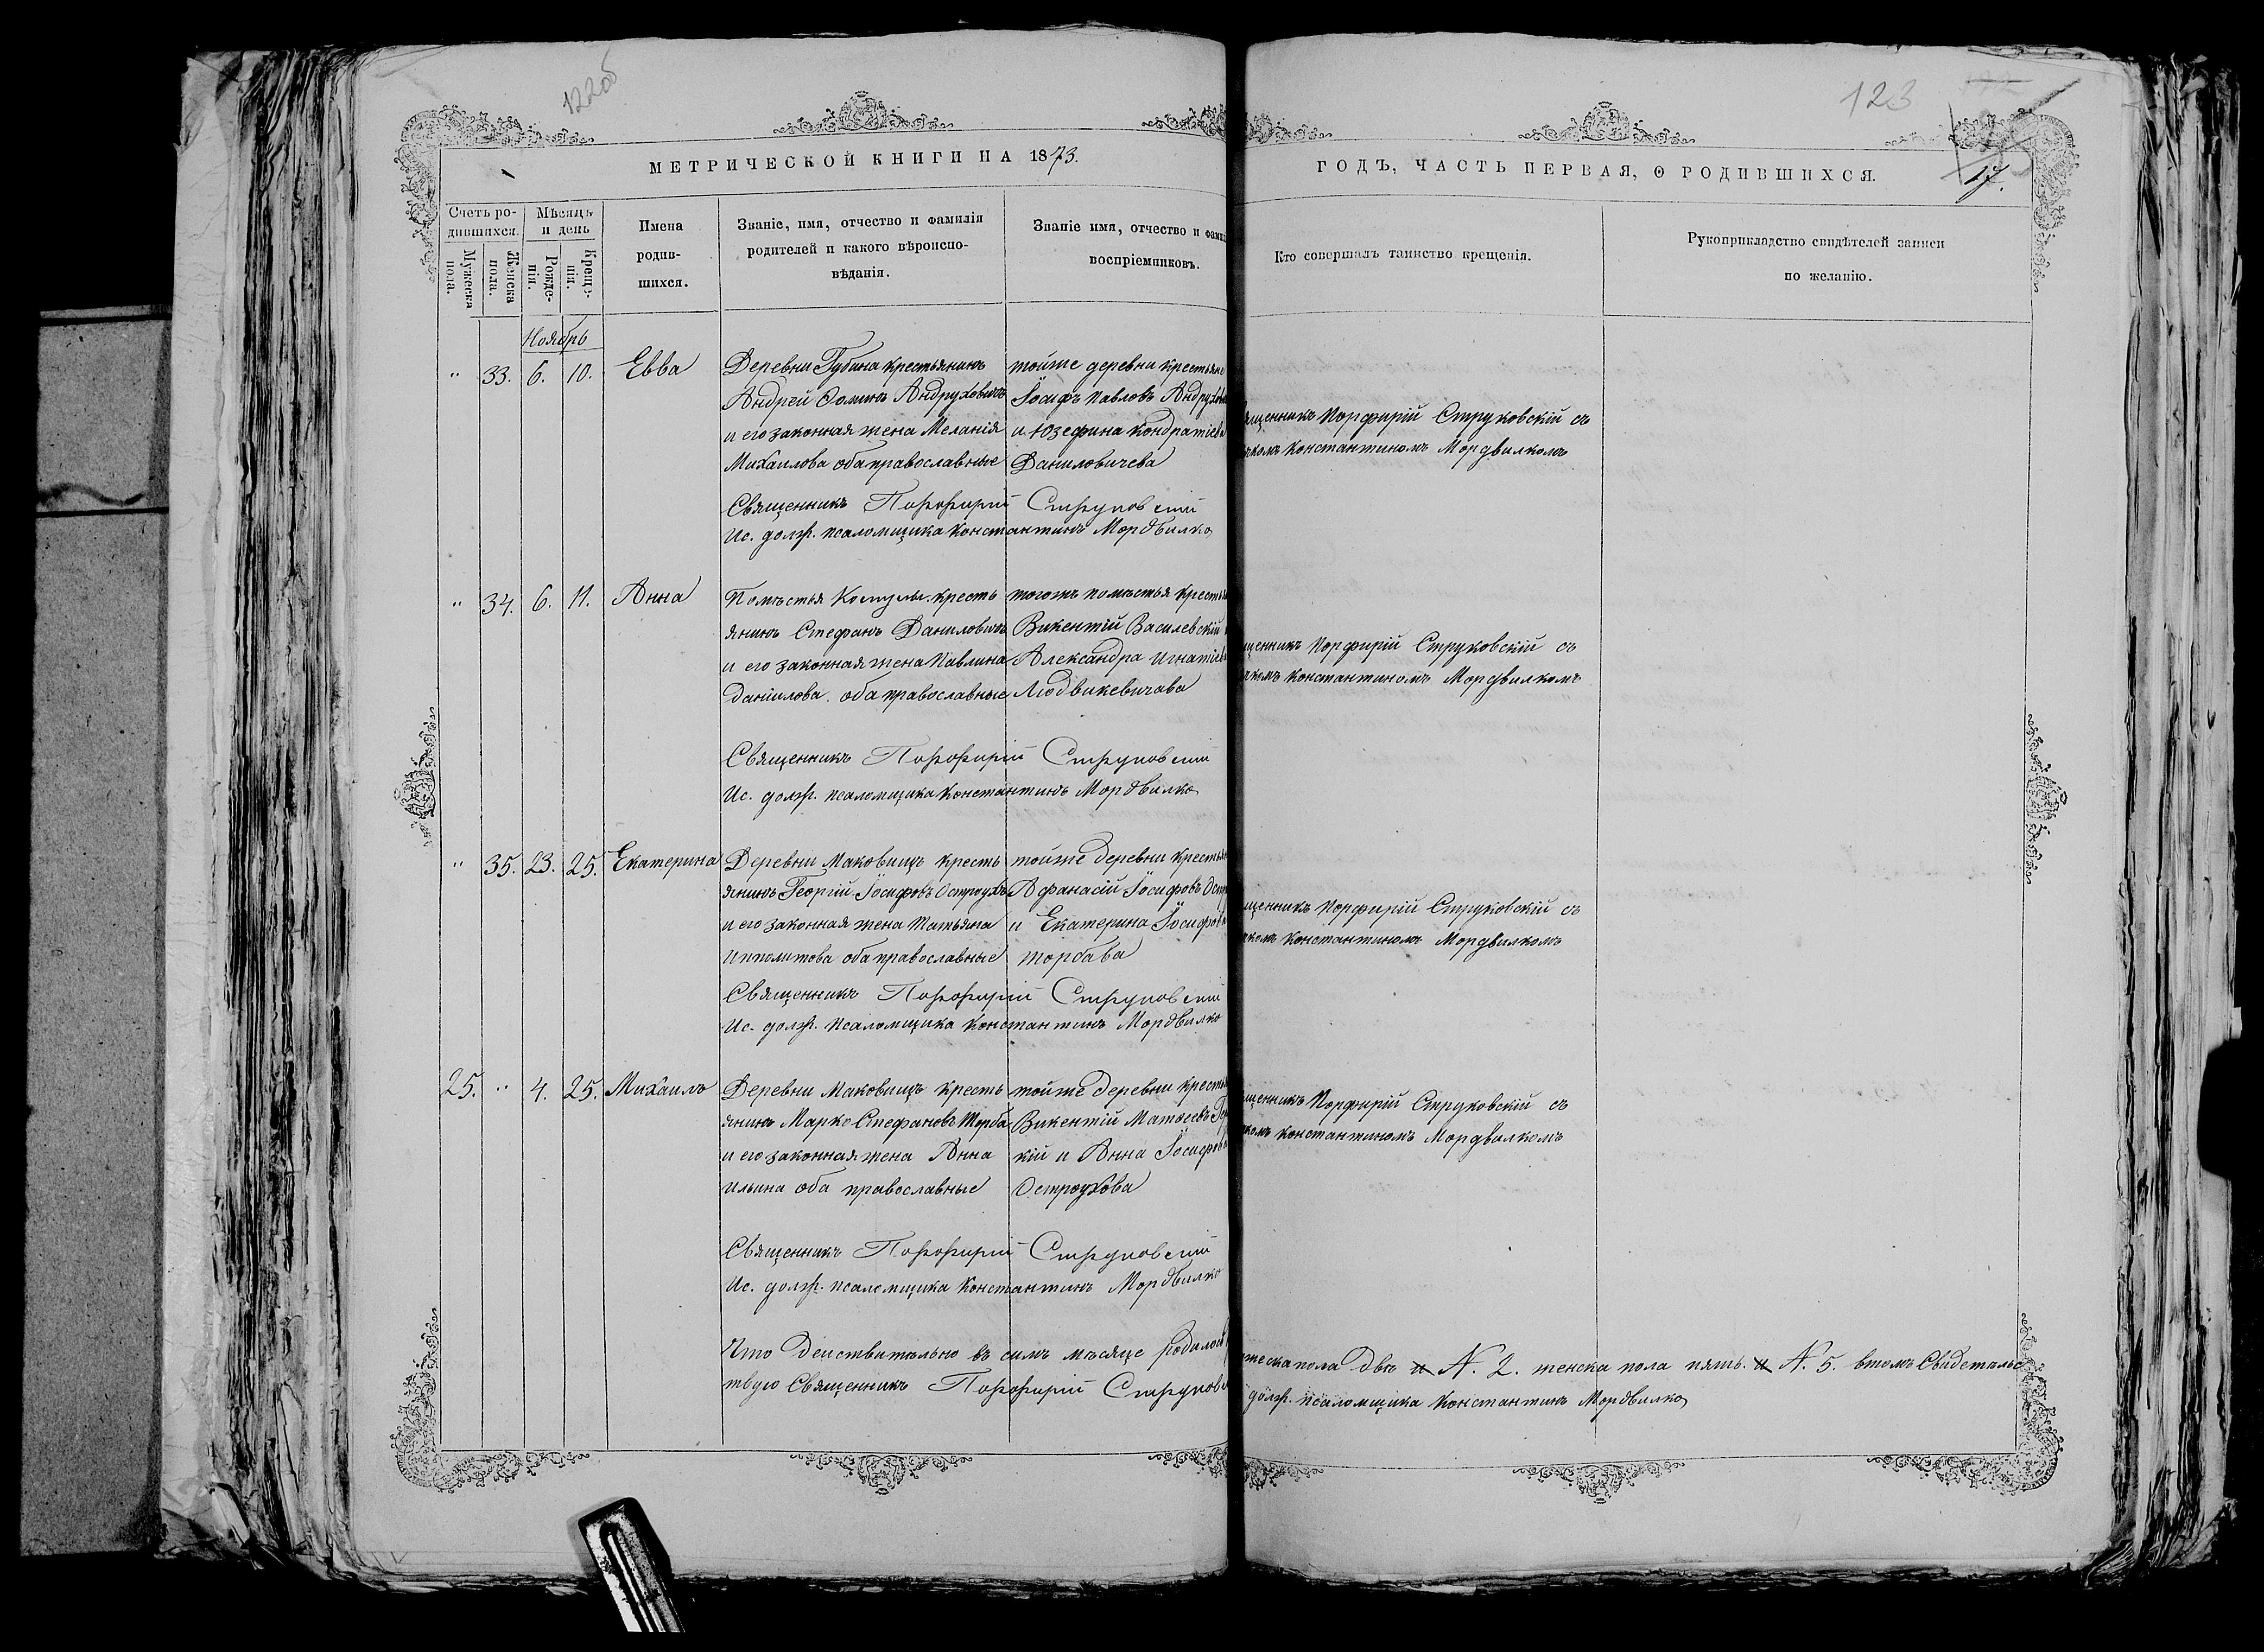 122об
123
МЕТРИЧЕСКОЙ КНИГИ НА 1873.
ГОДЪ, ЧАСТЬ ПЕРВАЯ, О РОДИВШИХСЯ.
17.
Счетъ ро-
дившихся.
Мужеска
пола.
Женска
пола.
Мѣсяцъ
и день
Рожде-
нія.
Креще-
нія.
Имена
родив-
шихся.
Званіе, имя, отчество и фамилія
родителей и какого вѣроиспо-
вѣданія.
Званіе имя, отчество и фами
воспріемниковъ.
Кто совершалъ таинство крещенія.
Рукоприкладство свидѣтелей записи
по желанію.
Ноябрь
" 33. 6. 10. Евва
Деревни Губина крестьянинъ
Андрей Андруховичъ
и его законная жена Меланія
Михаилова оба православные
тойже деревни крестьян
Іосифъ Павловъ Андрухов
и Юзефина Кондратіева
Даниловичева
щенникъ Порфирій Струковскій съ
комъ Константиномъ Мордвилкомъ
Священникъ Порфирій Струковскій
Ис. долж. псаломщика Константинъ Мордвилко
" 34. 6. 11. Анна
Помѣстья кресть
янинъ Стефанъ Даниловичъ
и его законная жена Павлина
Даніилова оба православные
тогожъ помѣстья кресть
Викентій Василевскій
Александра Игнатіева
Людвикевичова
щенникъ Порфирій Струковскій съ
комъ Константиномъ Мордвилкомъ
Священникъ Порфирій Струковскій
Ис. долж. псаломщика Константинъ Мордвилко
" 35. 23. 25. Екатерина
Деревни Маковищъ кресть
янинъ Георгій Іосифовъ Остроухъ
и его законная жена Татьяна
Ипполитова оба православные
тойже деревни кресть
Афанасій Іосифовъ Остр
и Екатерина Іосифова
Торбава
щенникъ Порфирій Струковскій съ
комъ Константиномъ Мордвилкомъ
Священникъ Порфирій Струковскій
Ис. долж. псаломщика Константинъ Мордвилко
25. " 4. 25. Михаилъ
Деревни Маковищъ кресть
янинъ Марко Стефановъ Торба
и его законная жена Анна
Ильина оба православные
тойже деревни кресть
Викентій Матѳеевъ
кій и Анна Іосифов
Остроухова
щенникъ Порфирій Струковскій съ
комъ Константиномъ Мордвилкомъ
Священникъ Порфирій Струковскій
Ис. долж. псаломщика Константинъ Мордвилко
Что действительно въ симъ мѣсяце родилось
жеска пола двѣ и N. 2. женска пола пять. и N. 5. втомъ Свидетельс
твую Священникъ Порфирій Струковс
долж. псаломщика Константинъ Мордвилко